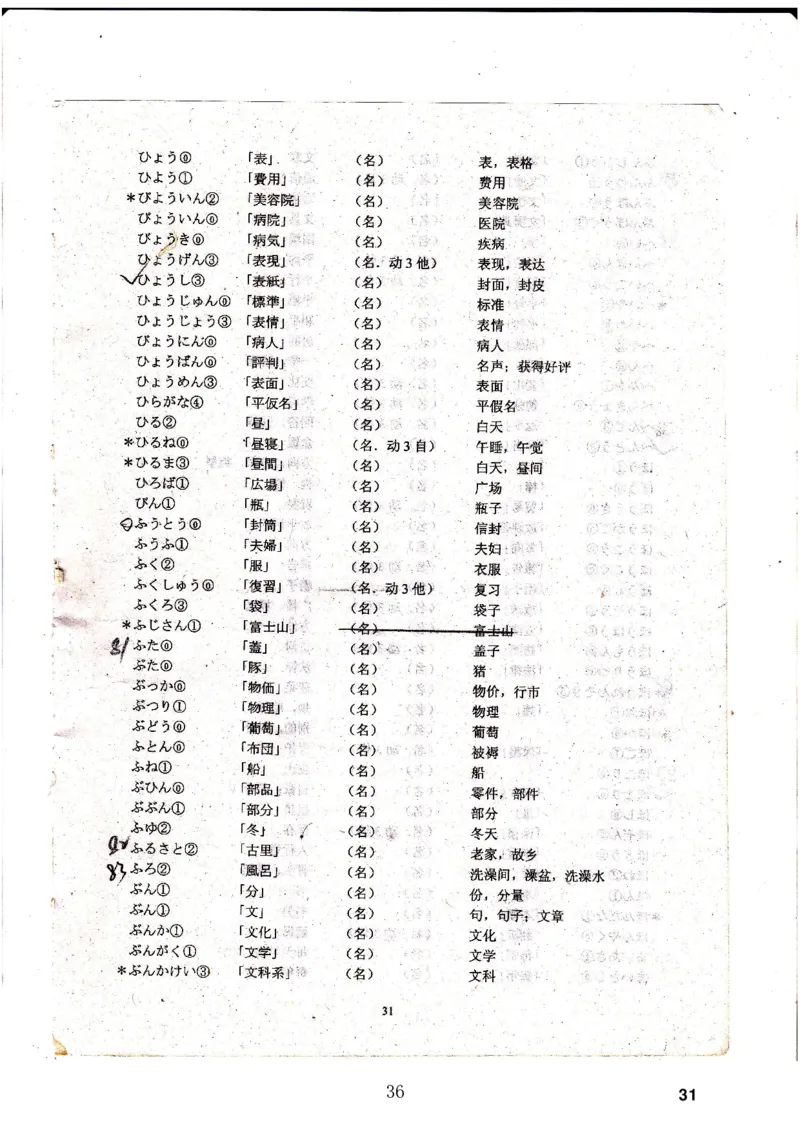 ひょう⓪ 「表」 (名) 表，表格
ひよう① 「費用」 (名) 费用
*びよういん② 「美容院」 (名) 美容院
びょういん⓪ 「病院」 (名) 医院
びょうき⓪ 「病気」 (名) 疾病
ひょうげん③ 「表現」 (名．动3他) 表现，表达
ひょうし③ 「表紙」 (名) 封面，封皮
ひょうじゅん⓪ 「標準」 (名) 标准
ひょうじょう③ 「表情」 (名) 表情
びょうにん⓪ 「病人」 (名) 病人
ひょうばん⓪ 「評判」 (名) 名声；获得好评
ひょうめん③ 「表面」 (名) 表面
ひらがな④ 「平仮名」 (名) 平假名
ひる② 「昼」 (名) 白天
*ひるね⓪ 「昼寝」 (名．动3自) 午睡，午觉
*ひるま③ 「昼間」 (名) 白天，昼间
ひろば① 「広場」 (名) 广场
びん① 「瓶」 (名) 瓶子
ふうとう⓪ 「封筒」 (名) 信封
ふうふ① 「夫婦」 (名) 夫妇
ふく② 「服」 (名) 衣服
ふくしゅう⓪ 「復習」 (名．动3他) 复习
ふくろ③ 「袋」 (名) 袋子
*ふじさん① 「富士山」 (名) 富士山
81 ふた⓪ 「蓋」 (名) 盖子
ぶた⓪ 「豚」 (名) 猪
ぶっか⓪ 「物価」 (名) 物价，行市
ぶつり① 「物理」 (名) 物理
ぶどう⓪ 「葡萄」 (名) 葡萄
ふとん⓪ 「布団」 (名) 被褥
ふね① 「船」 (名) 船
ぶひん⓪ 「部品」 (名) 零件，部件
ぶぶん① 「部分」 (名) 部分
ふゆ② 「冬」 (名) 冬天
ふるさと② 「古里」 (名) 老家，故乡
83 ふろ② 「風呂」 (名) 洗澡间，澡盆，洗澡水
ぶん① 「分」 (名) 份，分量
ぶん① 「文」 (名) 句，句子；文章
ぶんか① 「文化」 (名) 文化
ぶんがく① 「文学」 (名) 文学
*ぶんかけい③ 「文科系」 (名) 文科
31
36
31